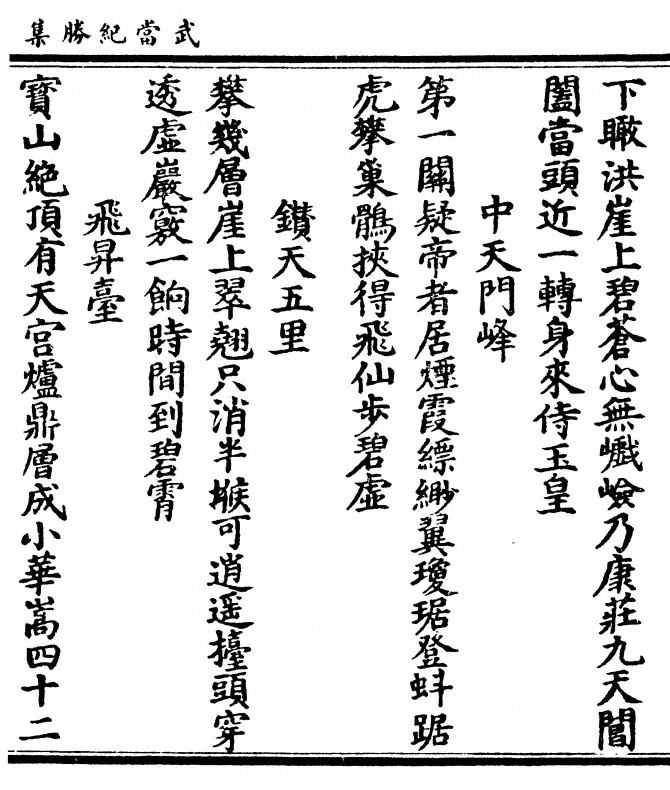 武當紀勝集
下瞰洪崖上碧蒼心無巇嶮乃康莊九天閶
闔當頭近一轉身來侍玉皇
中天門峰
第一關疑帝者居煙霞縹緲翼瓊琚登蚪踞
虎攀巢鶻挾得飛仙步碧虛
鑚天五里
攀幾層崖上翠翹只消半堠可逍遥擡頭穿
透虛巖竅一餉時間到碧霄
飛昇臺
寶山絶頂有天宫爐鼎層成小華嵩四十二